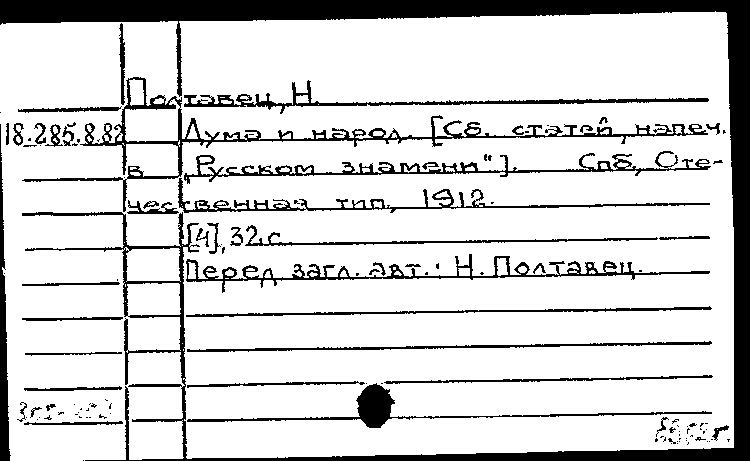 Полтавец, Н.
18.285.8.82 Дума и народ. [Сб. статей, напеч.
в „Русском знамени"]. Спб., Оте-
чественная тип., 1912.
[4], 32 с.
Перед загл. авт.: Н. Полтавец.